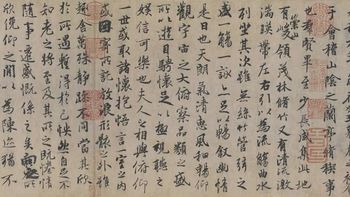 于會稽山陰之蘭亭脩稧事
也羣賢畢至少長咸集此地
有崇山峻領茂林脩竹又有清流激
湍暎帶左右引以為流觴曲水
列坐其次雖無絲竹管弦之
盛一觴一詠亦足以暢叙幽情
是日也天朗氣清惠風和暢仰
觀宇宙之大俯察品類之盛
所以遊目騁懷足以極視聽之
娛信可樂也夫人之相與俯仰
一世或取諸懷抱悟言一室之內
或因寄所託放浪形骸之外雖
趣舍萬殊靜躁不同當其欣
於所遇蹔得於己怏然自足不
知老之將至及其所之既惓情
隨事遷感慨係之矣向之所
欣俛仰之閒以為陳迹猶不